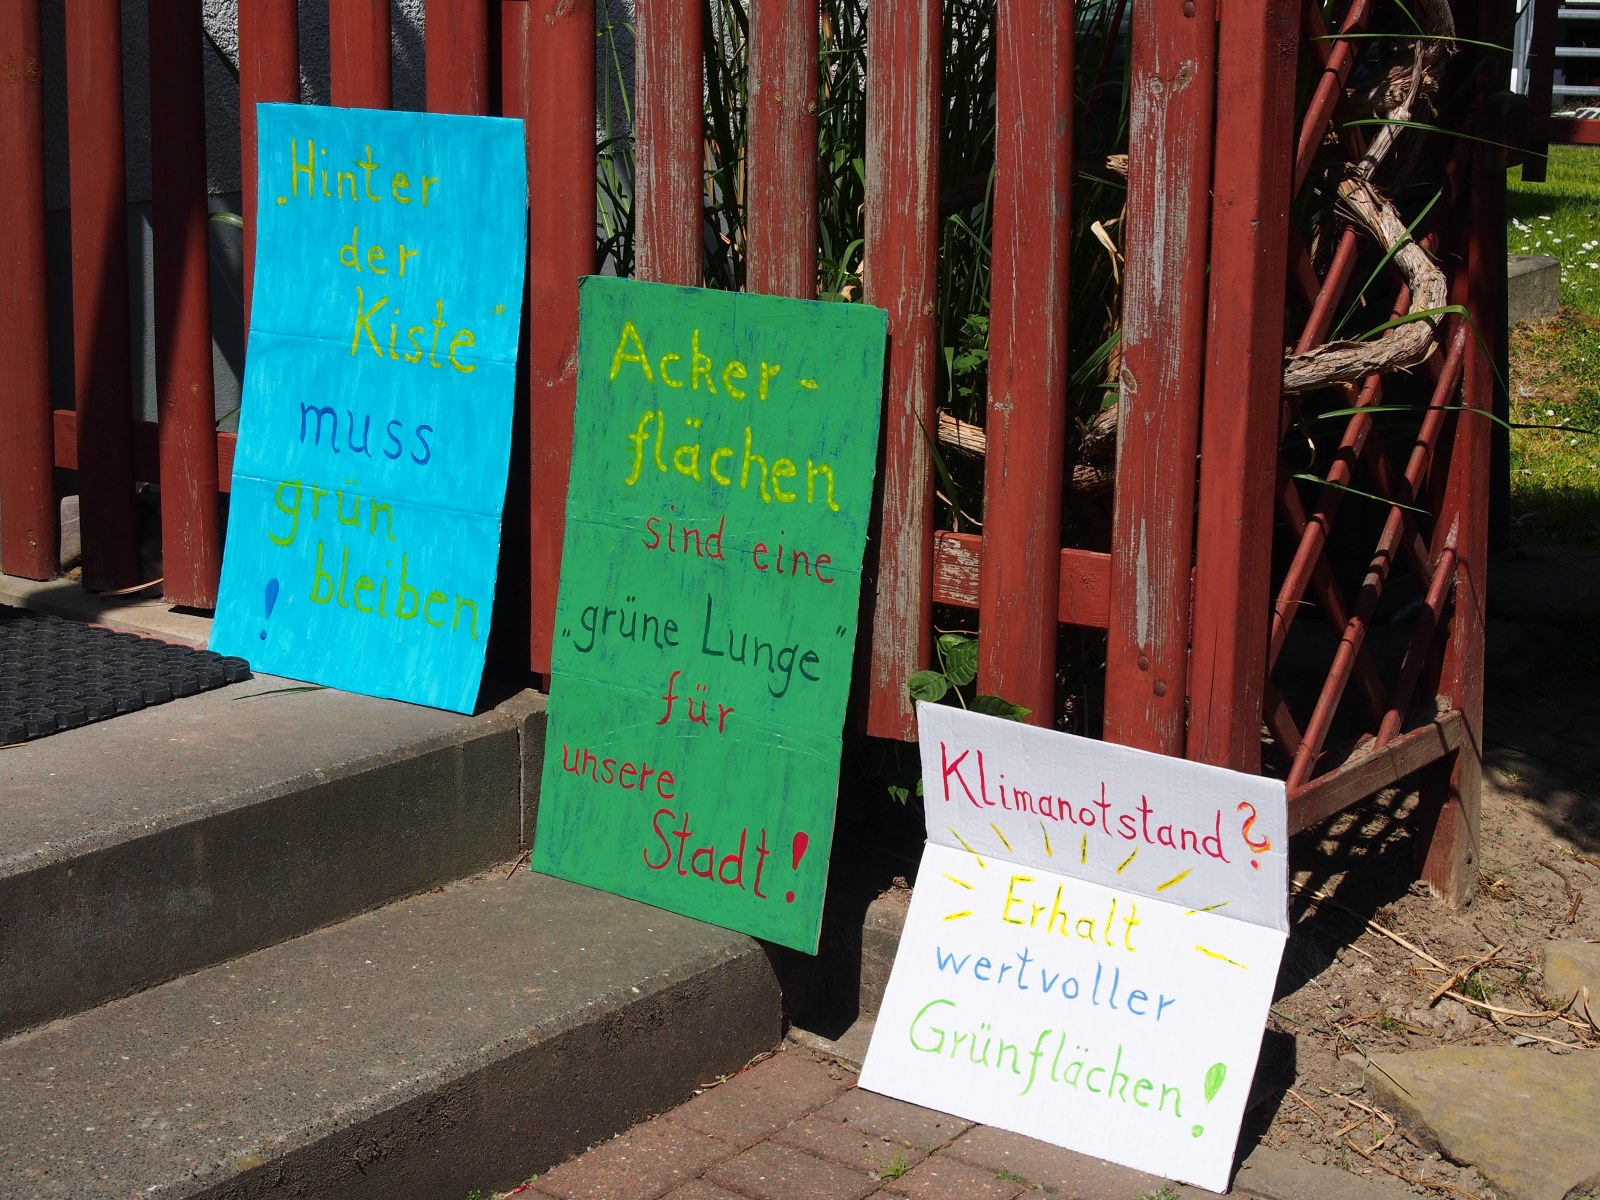 „Hinter
der
Kiste"
muss
grün
bleiben
!
Acker-
flächen
sind eine
„grüne Lunge"
für
unsere
Stadt!
Klimanotstand?
Erhalt
wertvoller
Grünflächen!